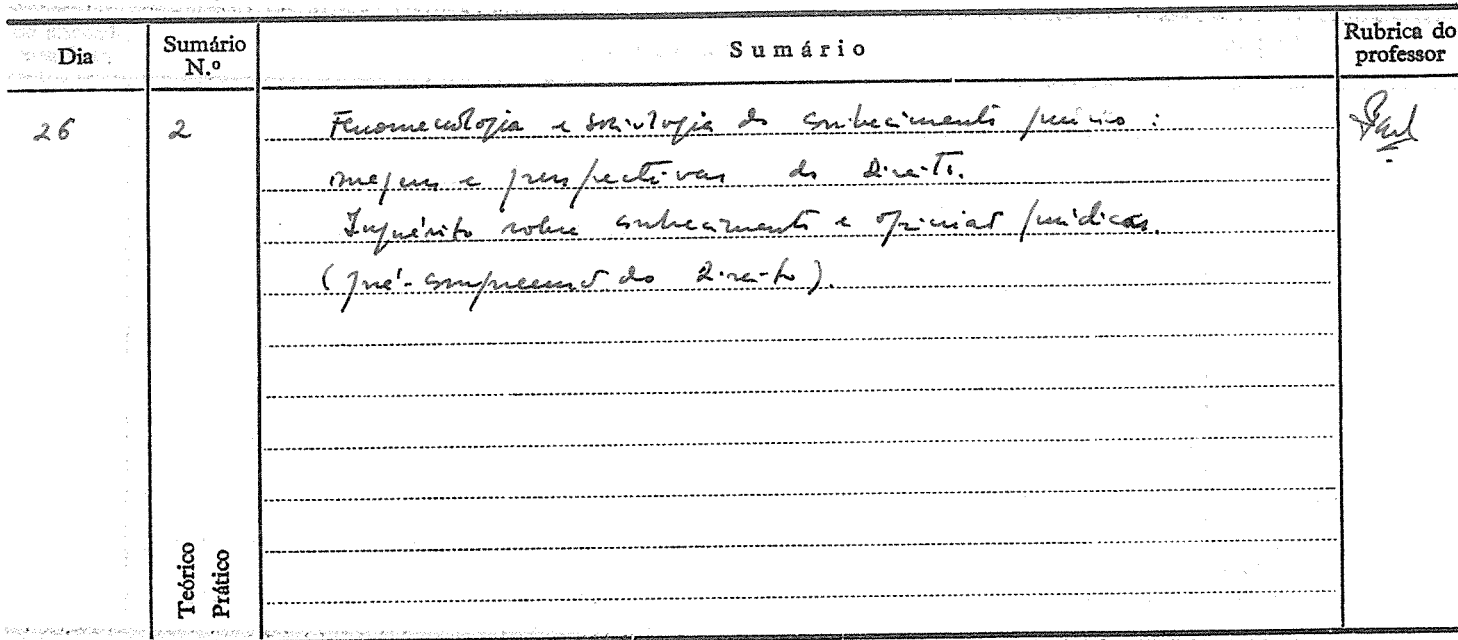 Dia
Sumário N.º
Sumário
Rubrica do professor
26
2
Fenomenologia e sociologia do conhecimento jurídico:
e perspectivas do Direito.
Inquérito sobre conhecimento e opiniões jurídicas.
(pré-compreensão do Direito).
Teórico
Prático